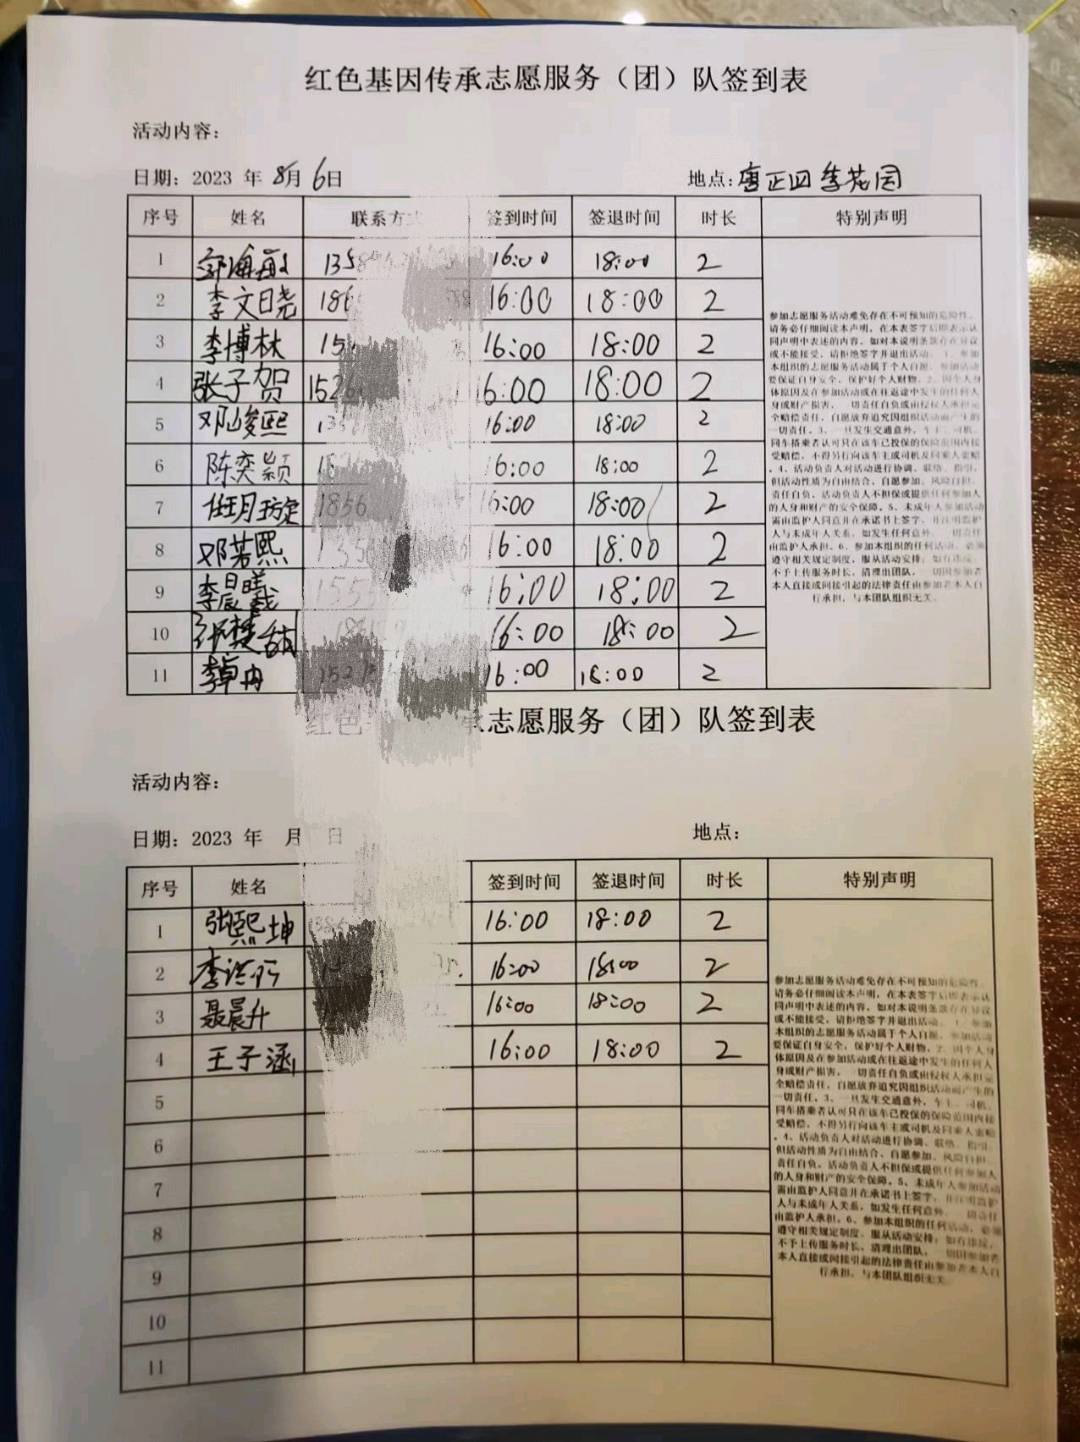 红色基因传承志愿服务（团）队签到表
活动内容：
日期：2023 年 8月 6日 地点：唐正四季花园
序号 姓名 联系方 签到时间 签退时间 时长 特别声明
1 16:00 18:00 2
2 李文日尧 186 16:00 18:00 2
3 李博林 15 16:00 18:00 2
4 张子贺 152 16:00 18:00 2
5 邓峻熙 16:00 18:00 2
6 陈奕颖 16:00 18:00 2
7 任玥璇 1856 16:00 18:00 2
8 邓若熙 16:00 18:00 2
9 李晨曦 155 16:00 18:00 2
10 16:00 18:00 2
11 16:00 18:00 2
参加志愿服务活动难免存在不可预知的危险性，
请务必仔细阅读本声明，在本表签字后即表示认
同声明中表述的内容，如对本说明条款存在异议
或不能接受，请拒绝签字并退出活动。1、参加
本组织的志愿服务活动属于个人自愿，参加活动
要保证自身安全，保护好个人财物。2、因个人身
体原因及在参加活动或在往返途中发生的任何人
身或财产损害，一切责任自负或由侵权人承担完
全赔偿责任，自愿放弃追究因组织活动而产生的
一切责任。3、一旦发生交通意外，车主、司机、
同车搭乘者认可只在该车已投保的保险范围内接
受赔偿，不得另行向该车主或司机及同乘人索赔
。4、活动负责人对活动进行协调、联络、指引，
但活动性质为自由结合、自愿参加、风险自担、
责任自负，活动负责人不担保或提供任何参加人
的人身和财产的安全保障。5、未成年人参加活动
需由监护人同意并在承诺书上签字，并注明监护
人与未成年人关系，如发生任何意外，一切责任
由监护人承担。6、参加本组织的任何活动，必须
遵守相关规定制度，服从活动安排；如有违反，
不予上传服务时长，清理出团队，一切因参加者
本人直接或间接引起的法律责任由参加者本人自
行承担，与本团队组织无关。
红色 志愿服务（团）队签到表
活动内容：
日期：2023 年 月 日 地点：
序号 姓名 签到时间 签退时间 时长 特别声明
1 张熙坤 16:00 18:00 2
2 16:00 18:00 2
3 聂晨升 16:00 18:00 2
4 王子涵 16:00 18:00 2
5
6
7
8
9
10
11
参加志愿服务活动难免存在不可预知的危险性，
请务必仔细阅读本声明，在本表签字后即表示认
同声明中表述的内容，如对本说明条款存在异议
或不能接受，请拒绝签字并退出活动。1、参加
本组织的志愿服务活动属于个人自愿，参加活动
要保证自身安全，保护好个人财物。2、因个人身
体原因及在参加活动或在往返途中发生的任何人
身或财产损害，一切责任自负或由侵权人承担完
全赔偿责任，自愿放弃追究因组织活动而产生的
一切责任。3、一旦发生交通意外，车主、司机、
同车搭乘者认可只在该车已投保的保险范围内接
受赔偿，不得另行向该车主或司机及同乘人索赔
。4、活动负责人对活动进行协调、联络、指引，
但活动性质为自由结合、自愿参加、风险自担、
责任自负，活动负责人不担保或提供任何参加人
的人身和财产的安全保障。5、未成年人参加活动
需由监护人同意并在承诺书上签字，并注明监护
人与未成年人关系，如发生任何意外，一切责任
由监护人承担。6、参加本组织的任何活动，必须
遵守相关规定制度，服从活动安排；如有违反，
不予上传服务时长，清理出团队，一切因参加者
本人直接或间接引起的法律责任由参加者本人自
行承担，与本团队组织无关。